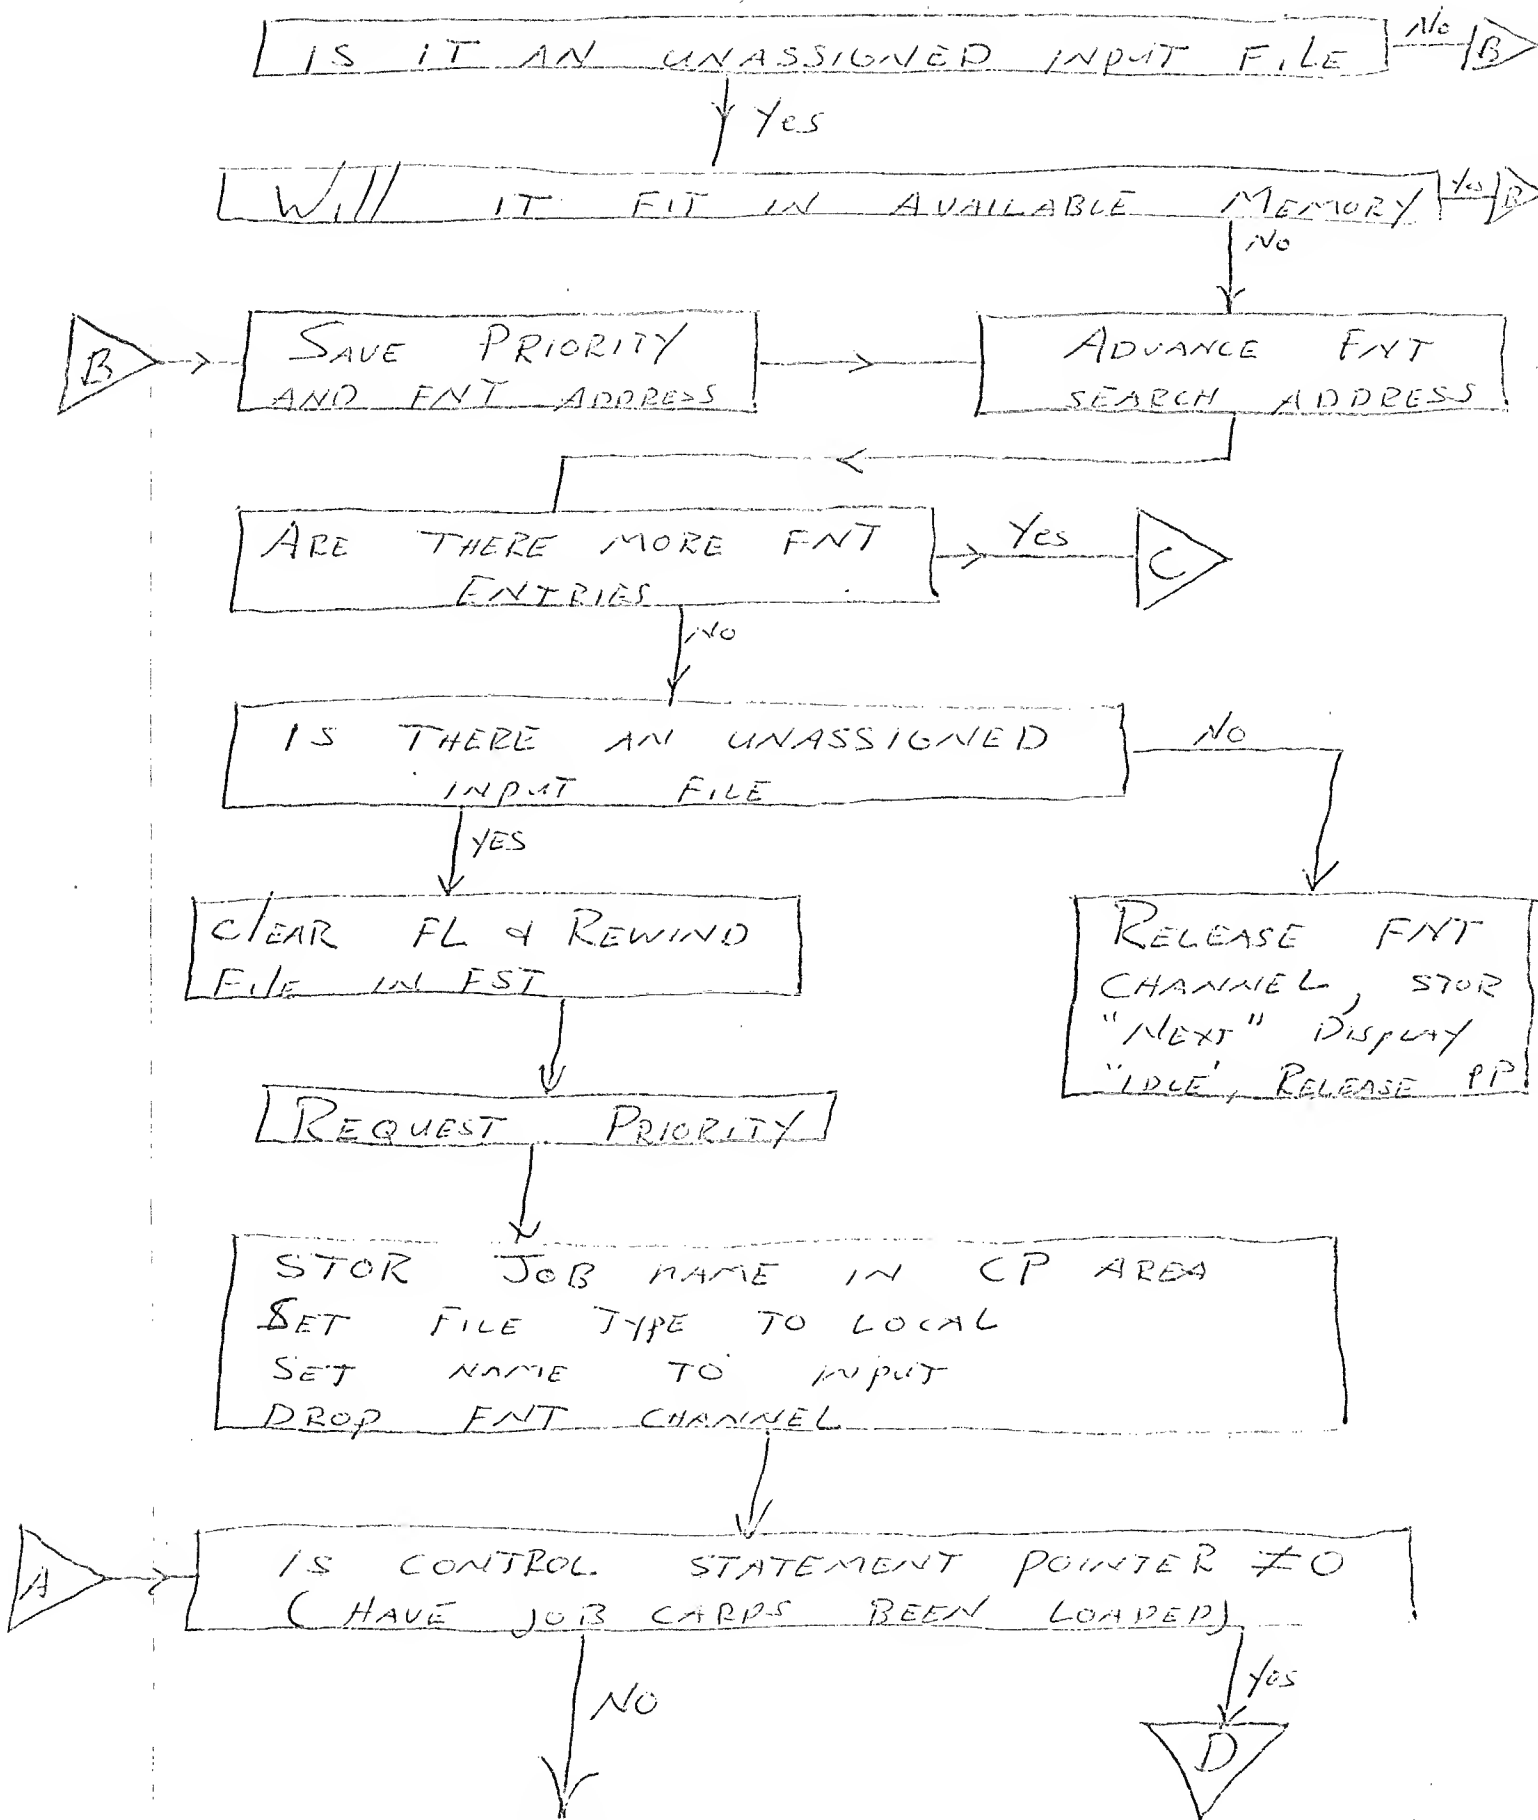 IS IT AN UNASSIGNED INPUT FILE
No
B
Yes
Will IT FIT IN AVAILABLE MEMORY
Yes
B
No
B
SAVE PRIORITY
AND FNT ADDRESS
ADVANCE FNT
SEARCH ADDRESS
ARE THERE MORE FNT
ENTRIES
Yes
C
No
IS THERE AN UNASSIGNED
INPUT FILE
No
YES
ClEAR FL & REWIND
FilE IN FST
RELEASE FNT
CHANNEL, STOR
"NEXT" DISPLAY
"IDLE', RELEASE PP
REQUEST PRIORITY
STOR JOB NAME IN CP AREA
SET FILE TYPE TO LOCAL
SET NAME TO INPUT
DROP FNT CHANNEL
A
IS CONTROL STATEMENT POINTER ≠0
(HAVE JOB CARDS BEEN LOADED)
NO
Yes
D